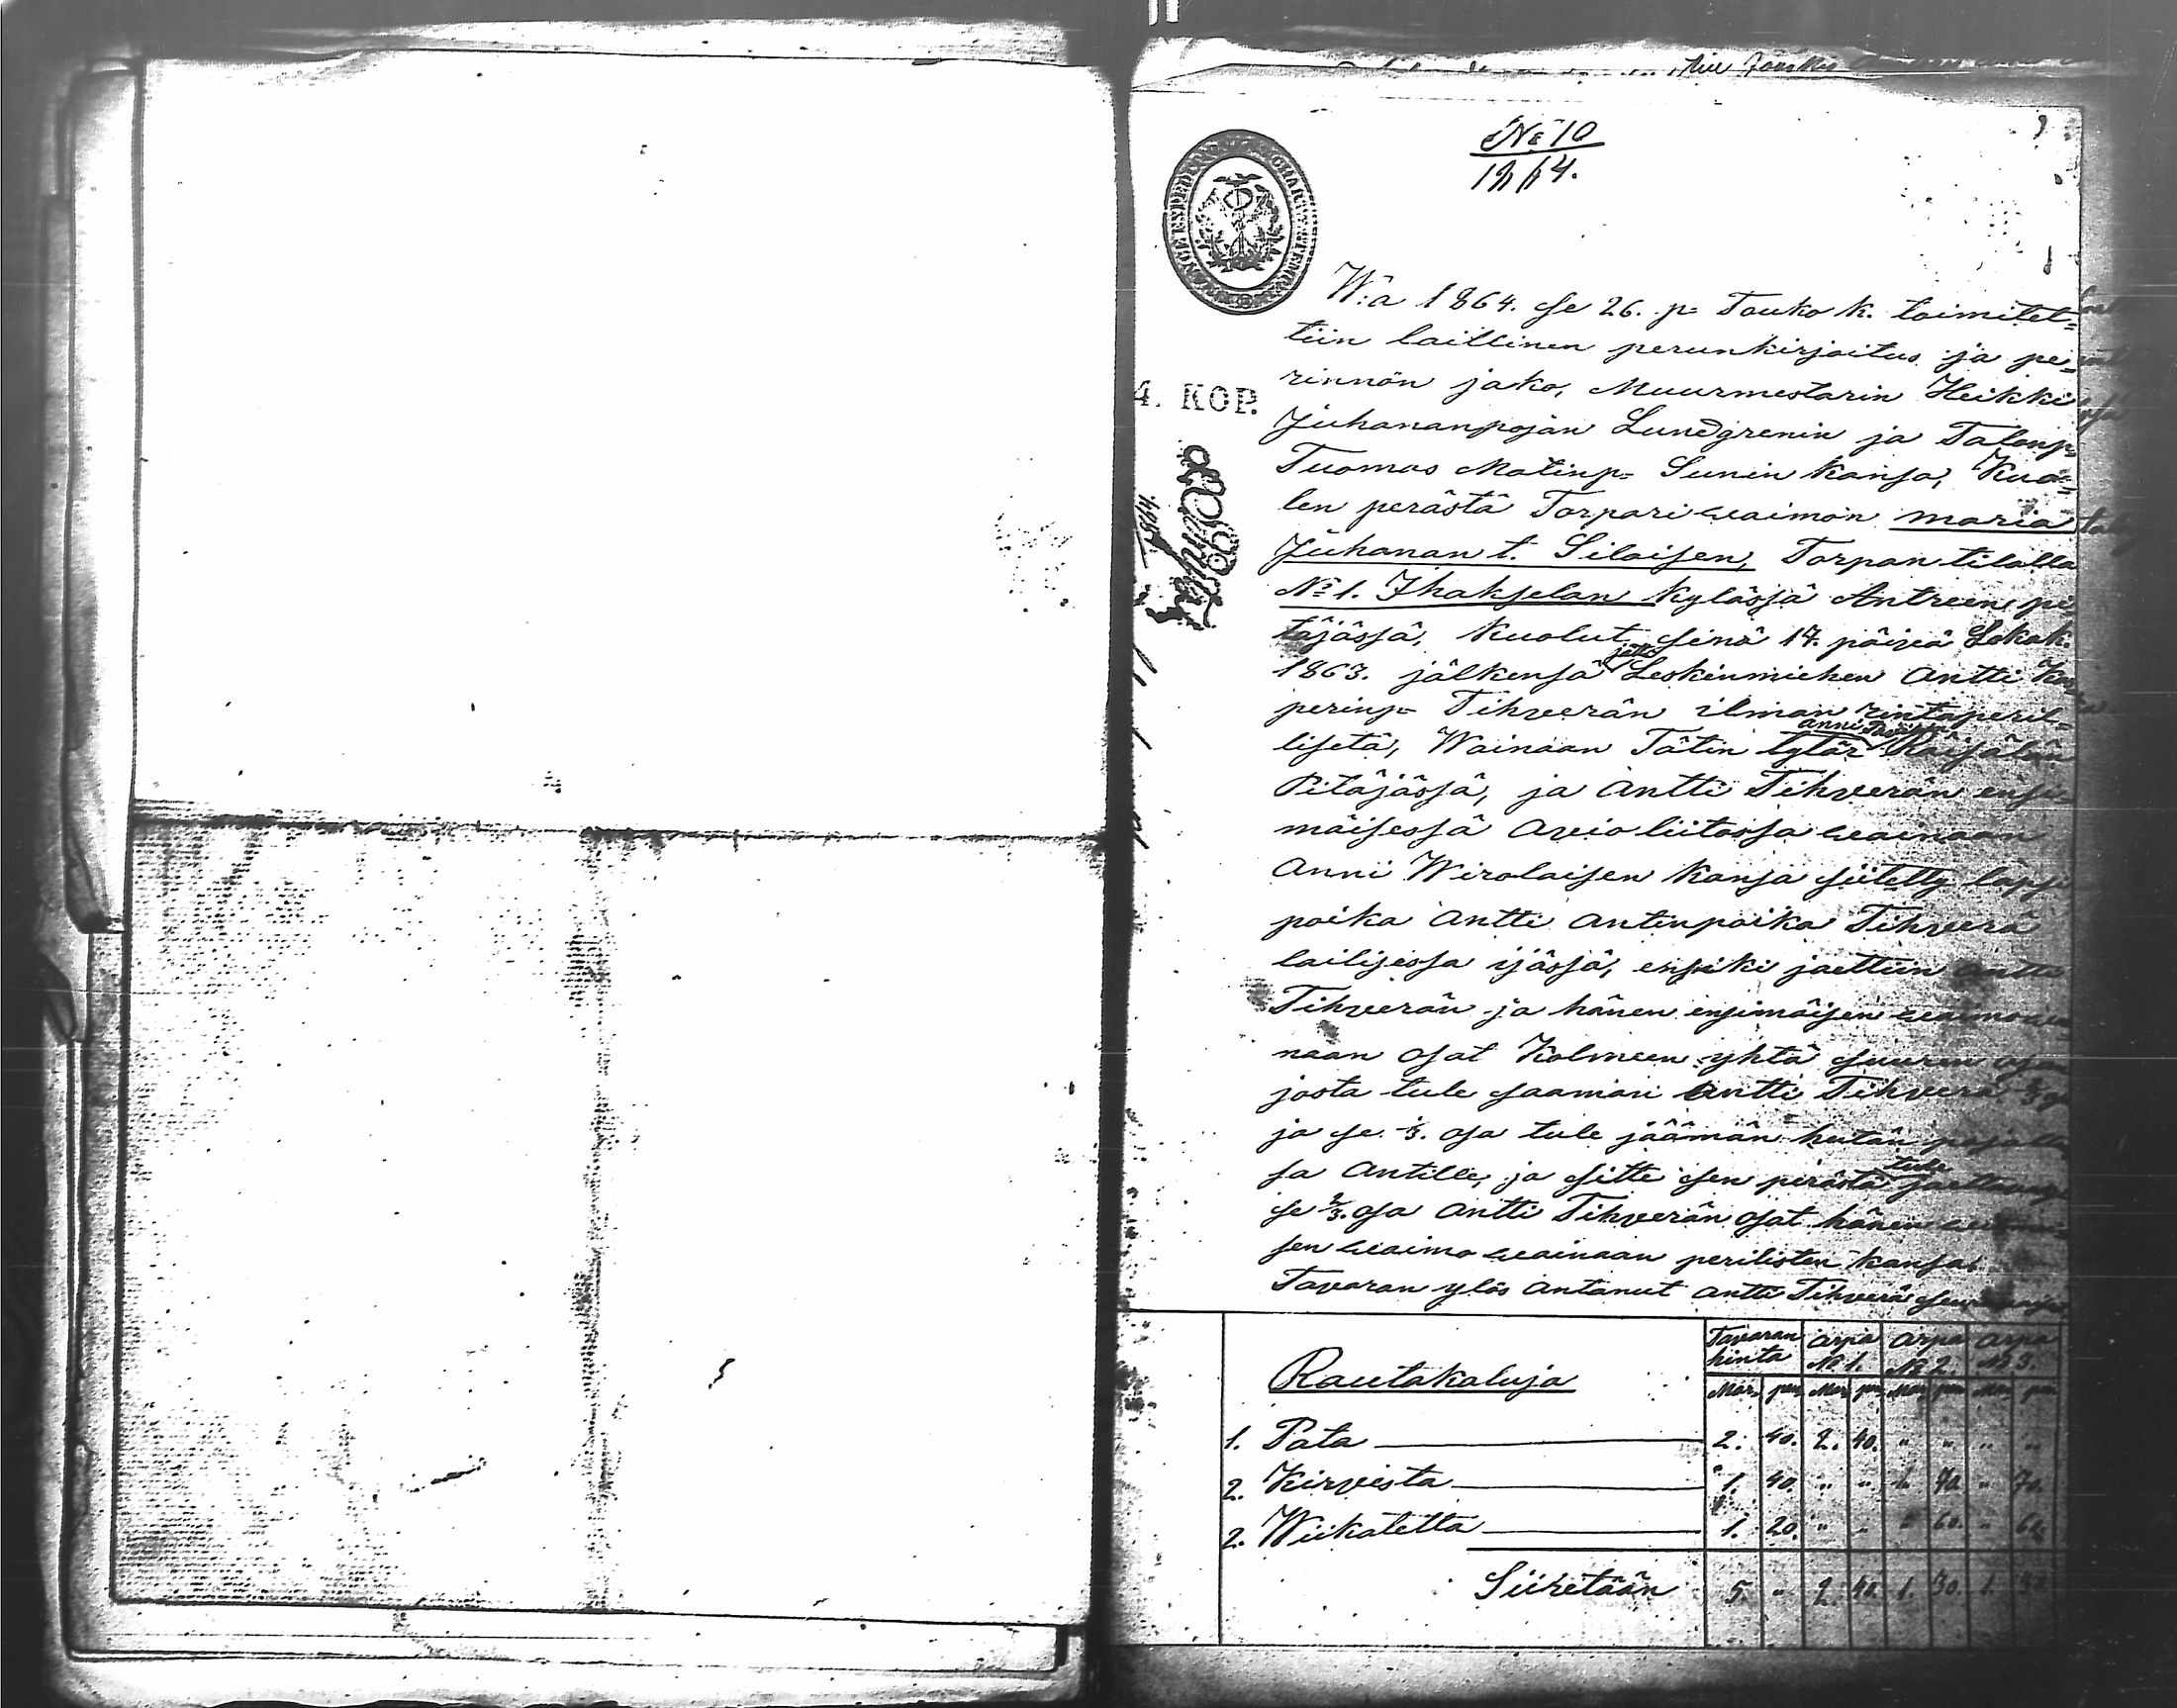 № 10
1864.
4. KOP.
W:a 1864. se 26. p= Touko k. toimitet=
tiin laillinen perunkirjoitus ja pe=
rinnön jako, Muurmestarin Heikki
Juhananpojan Lundgrenin ja Talonp=
Tuomas Matinp= Sunin kansa, Kuo=
len perästä Torpari waimon Maria
Juhanan t. Siloisen, Torpan tilalla
№ 1. Ihakselan kylässä Antreen pi
täjässä, kuolut sinä 17. päivä Lokak.
1863. jälkensä jätti Leskenmiehen Antti Kas
perinp= Tihverän ilman rintaperil=
lisetä, Wainaan Tätin tytär Anni Räisälän
Pitäjässä, ja Antti Tihverän ensi=
mäisessä avio liitossa wainaan
Anni Wirolaisen kansa siitetty lapsi
poika Antti Antinpoika Tihverä
lailisessa ijässä, ensiki jaettiin Antti
Tihverän ja hänen ensimäisen waimo
naan osat Kolmeen yhtä suuren osan
josta tule saamari Antti Tihverä 2/3
ja se 1/3. osa tule jäämän hutän pojalla
sa Antille, ja sitte sen perästä tule jaettawa
se 2/3. osa Antti Tihverän osat hänen
sen waimo wainaan perilisten kansa
Tavaran ylös antanut Antti Tihverä
Tavaran hinta Arpa № 1. Arpa № 2 Arpa № 3.
Rautakaluja
Mar. pen Mar pen Mar pen Mar pen
1. Pata 2. 40. 2. 40. " " " "
2. Kirvista 1. 40. " " " 70. " 70.
2. Wiikatetta 1. 20. " " " 60. " 60
Siiretään 5. " 2. 40. 1. 30. 1.